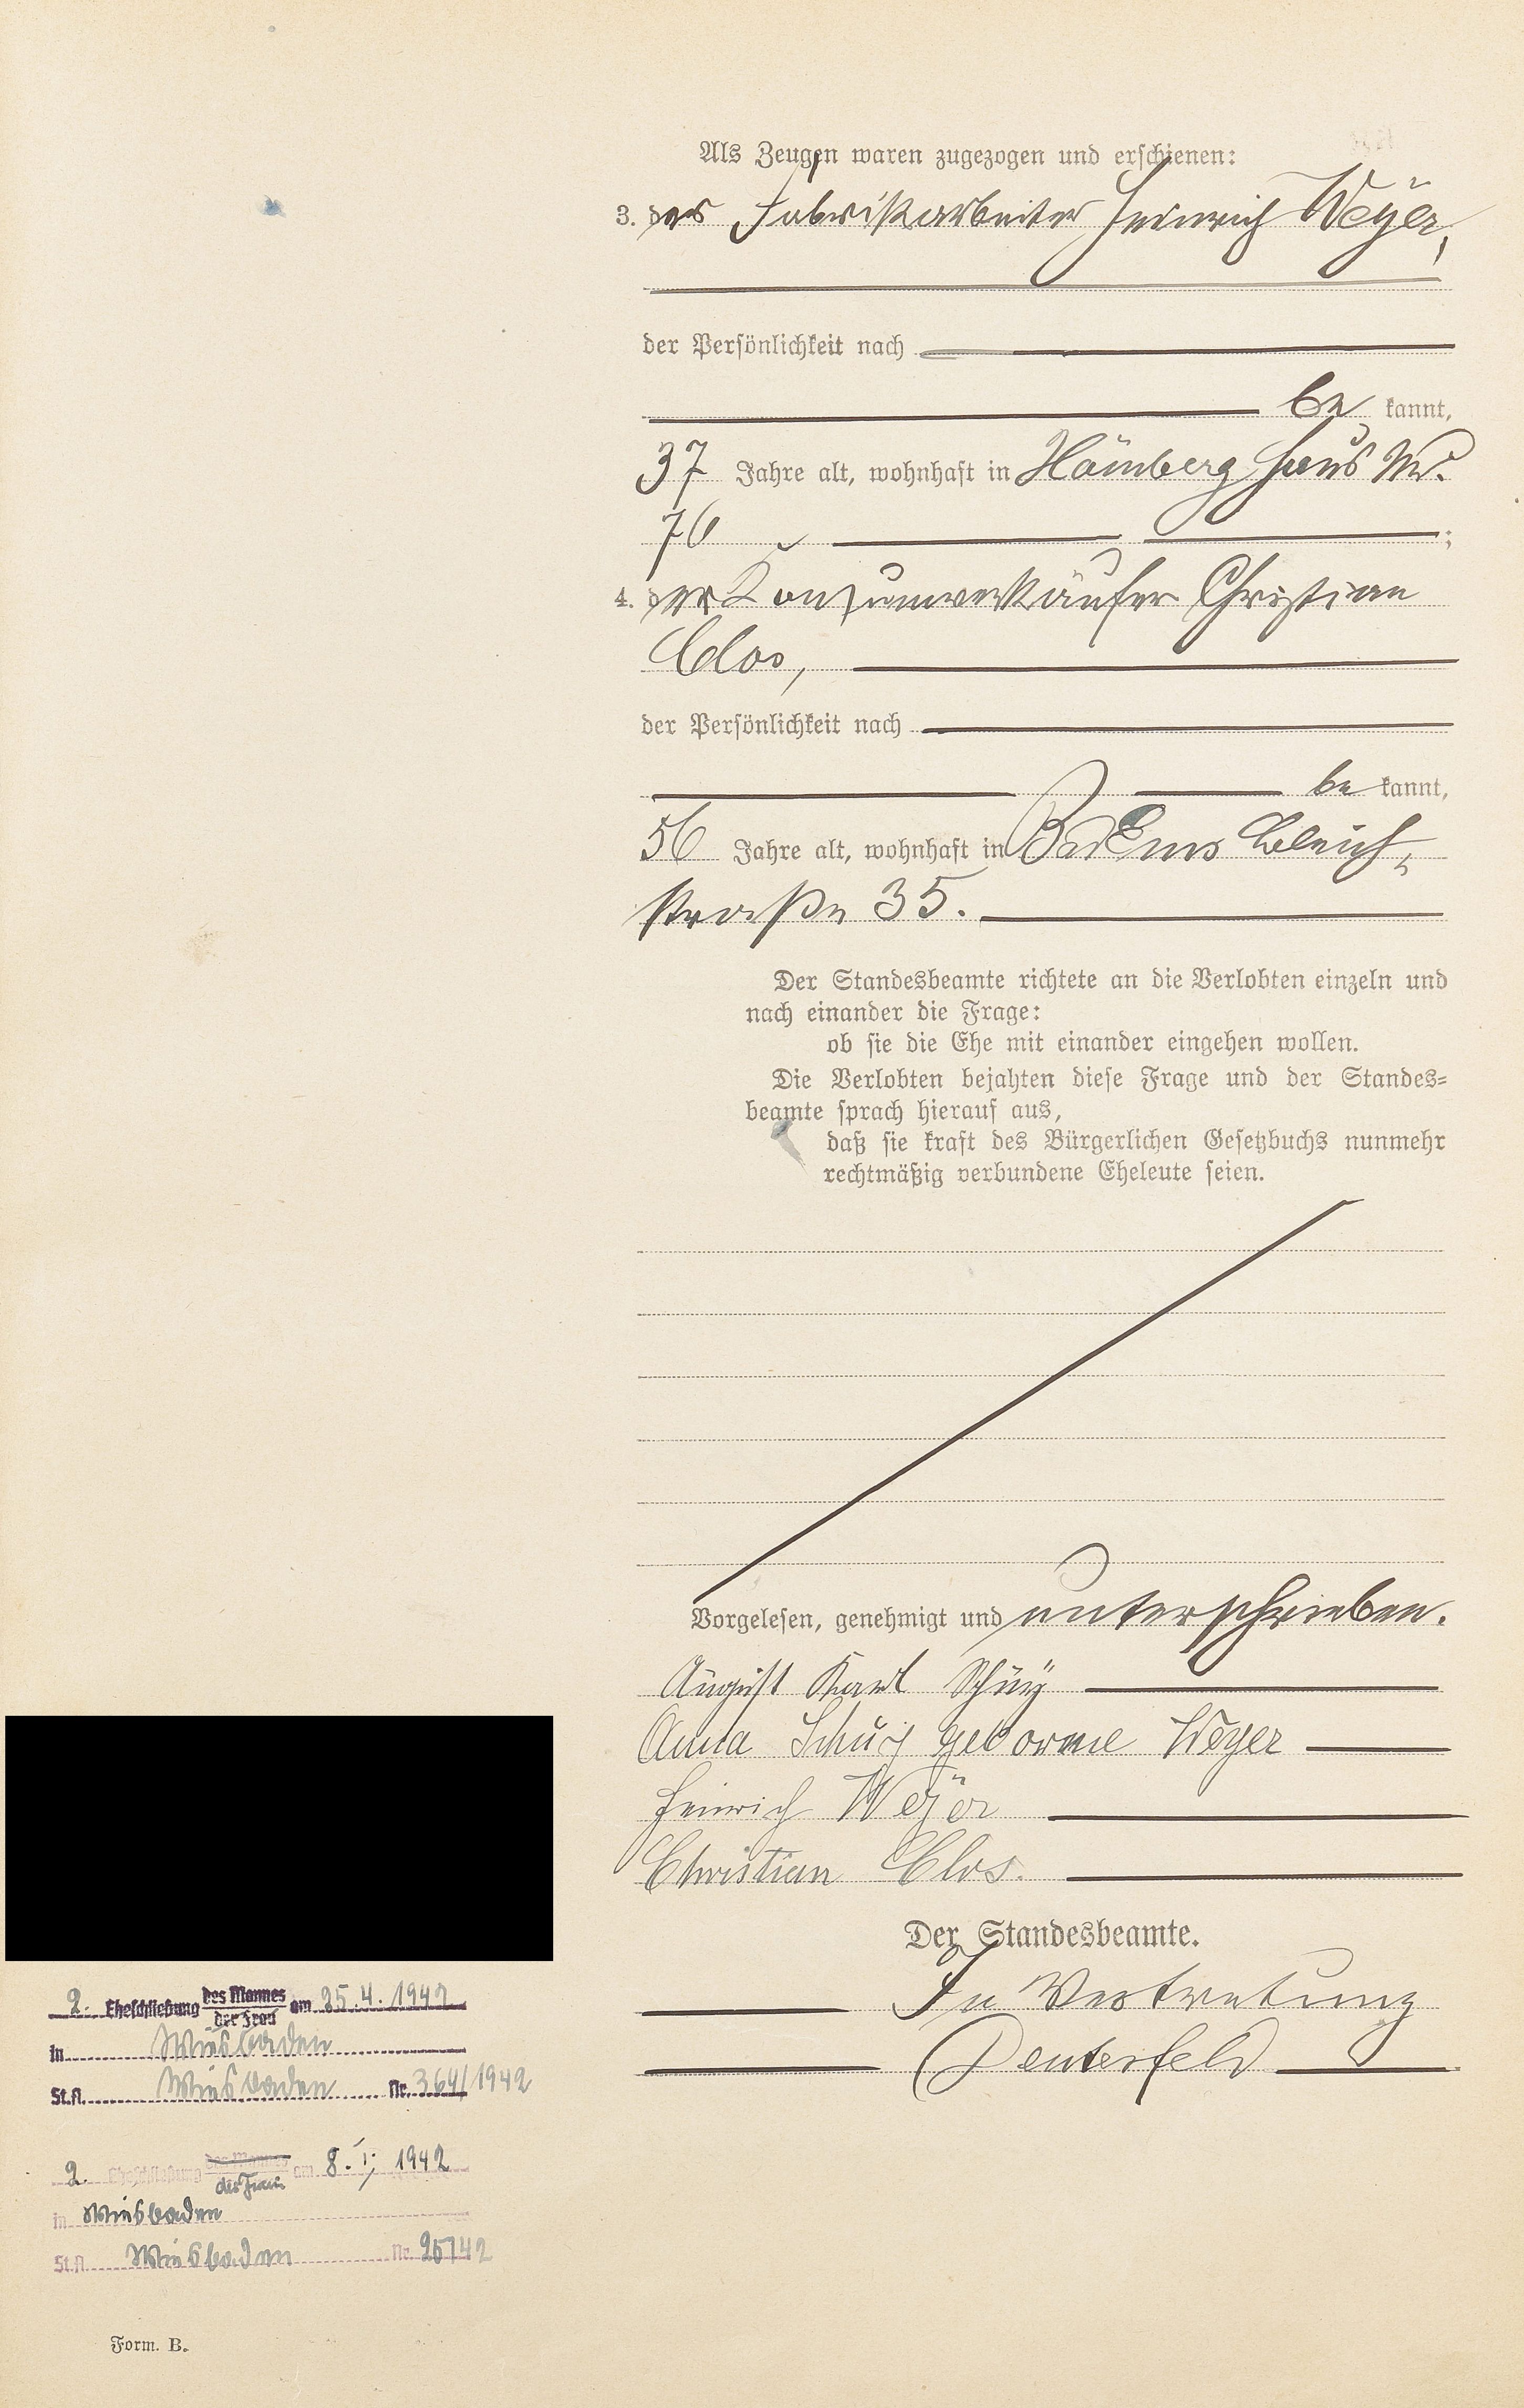 Als Zeugen waren zugezogen und erschienen:
3. der Fabrikarbeiter Heinrich Weyer,
der Persönlichkeit nach
be kannt,
37 Jahre alt, wohnhaft in Hömberg Haus Nr.
76 ;
4. der Konsumverkäufer Christian
Clos,
der Persönlichkeit nach
be kannt,
56 Jahre alt, wohnhaft in Bad Ems Bleich-
straße 35.
Der Standesbeamte richtete an die Verlobten einzeln und
nach einander die Frage:
ob sie die Ehe mit einander eingehen wollen.
Die Verlobten bejahten diese Frage und der Standes-
beamte sprach hierauf aus,
daß sie kraft des Bürgerlichen Gesetzbuchs nunmehr
rechtmäßig verbundene Eheleute seien.
Vorgelesen, genehmigt und unterschrieben.
August Karl Schuy
Anna Schuy geborene Weyer
Heinrich Weyer
Christian Clos.
Der Standesbeamte.
In Vertretung
2. Eheschließung des Mannes am 25.4.1942
der Frau
in Wiesbaden
St.A. Wiesbaden Nr. 364/1942
2. Eheschließung des Mannes am 8. I. 1942
der Frau
in Wiesbaden
St.A. Wiesbaden Nr. 25/42
Form. B.